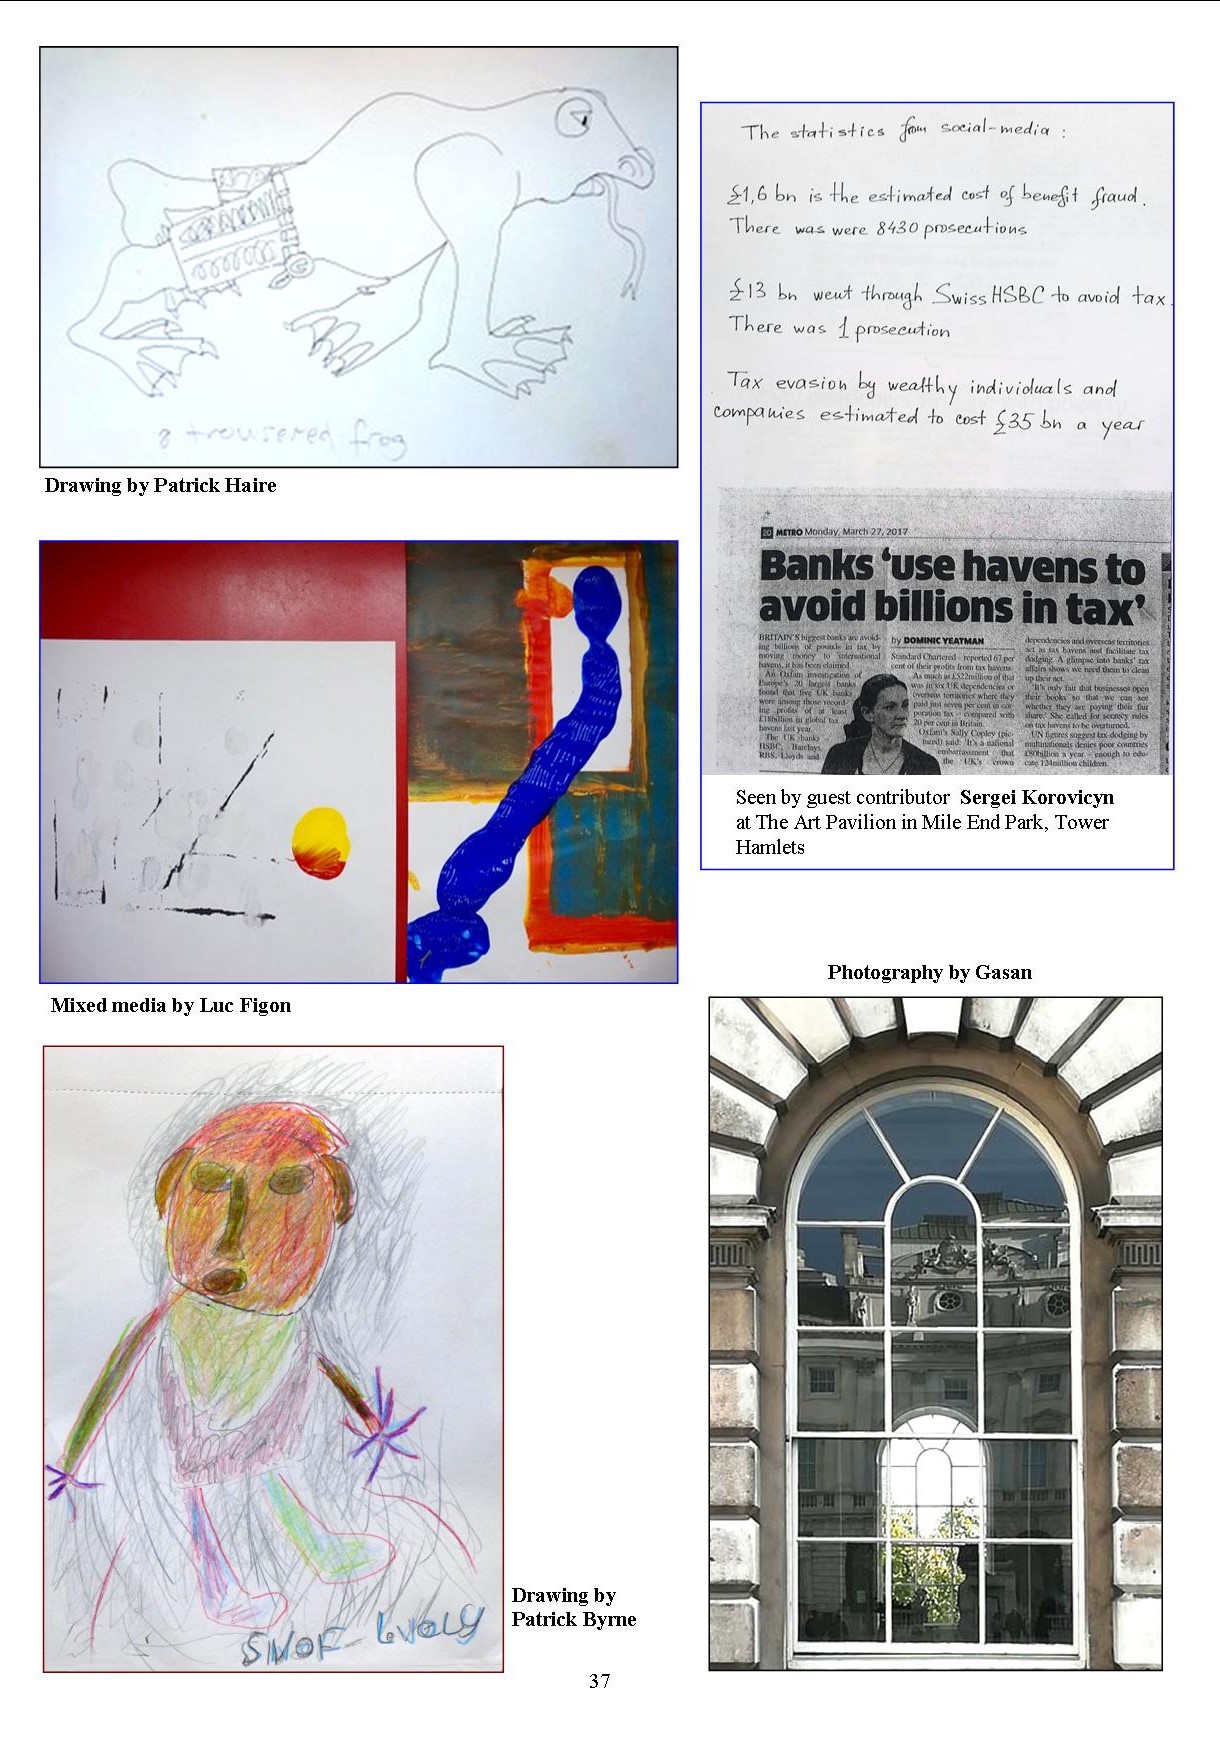 a trousered frog
Drawing by Patrick Haire
The statistics from social-media :
£1,6 bn is the estimated cost of benefit fraud.
There was were 8430 prosecutions
£13 bn went through Swiss HSBC to avoid tax.
There was 1 prosecution
Tax evasion by wealthy individuals and
companies estimated to cost £35 bn a year
20 METRO Monday, March 27, 2017
Banks ‘use havens to
avoid billions in tax’
BRITAIN'S biggest banks are avoid-
ing billions of pounds in tax by
moving money to international
havens, it has been claimed.
An Oxfam investigation of
Europe's 20 largest banks
found that five UK banks
were among those record-
ing profits of at least
£18billion in global tax
havens last year.
The UK banks
HSBC, Barclays,
RBS, Lloyds and
by DOMINIC YEATMAN
Standard Chartered – reported 67 per
cent of their profits from tax havens.
As much as £522million of that
was in six UK dependencies or
overseas territories where they
paid just seven per cent in cor-
poration tax – compared with
20 per cent in Britain.
Oxfam's Sally Copley (pic-
tured) said: 'It's a national
embarrassment that
the UK's crown
dependencies and overseas territories
act as tax havens and facilitate tax
dodging. A glimpse into banks' tax
affairs shows we need them to clean
up their act.
'It's only fair that businesses open
their books so that we can see
whether they are paying their fair
share.' She called for secrecy rules
on tax havens to be overturned.
UN figures suggest tax-dodging by
multinationals denies poor countries
£80billion a year – enough to edu-
cate 124million children.
Seen by guest contributor Sergei Korovicyn
at The Art Pavilion in Mile End Park, Tower
Hamlets
Mixed media by Luc Figon
Photography by Gasan
Drawing by
Patrick Byrne
37